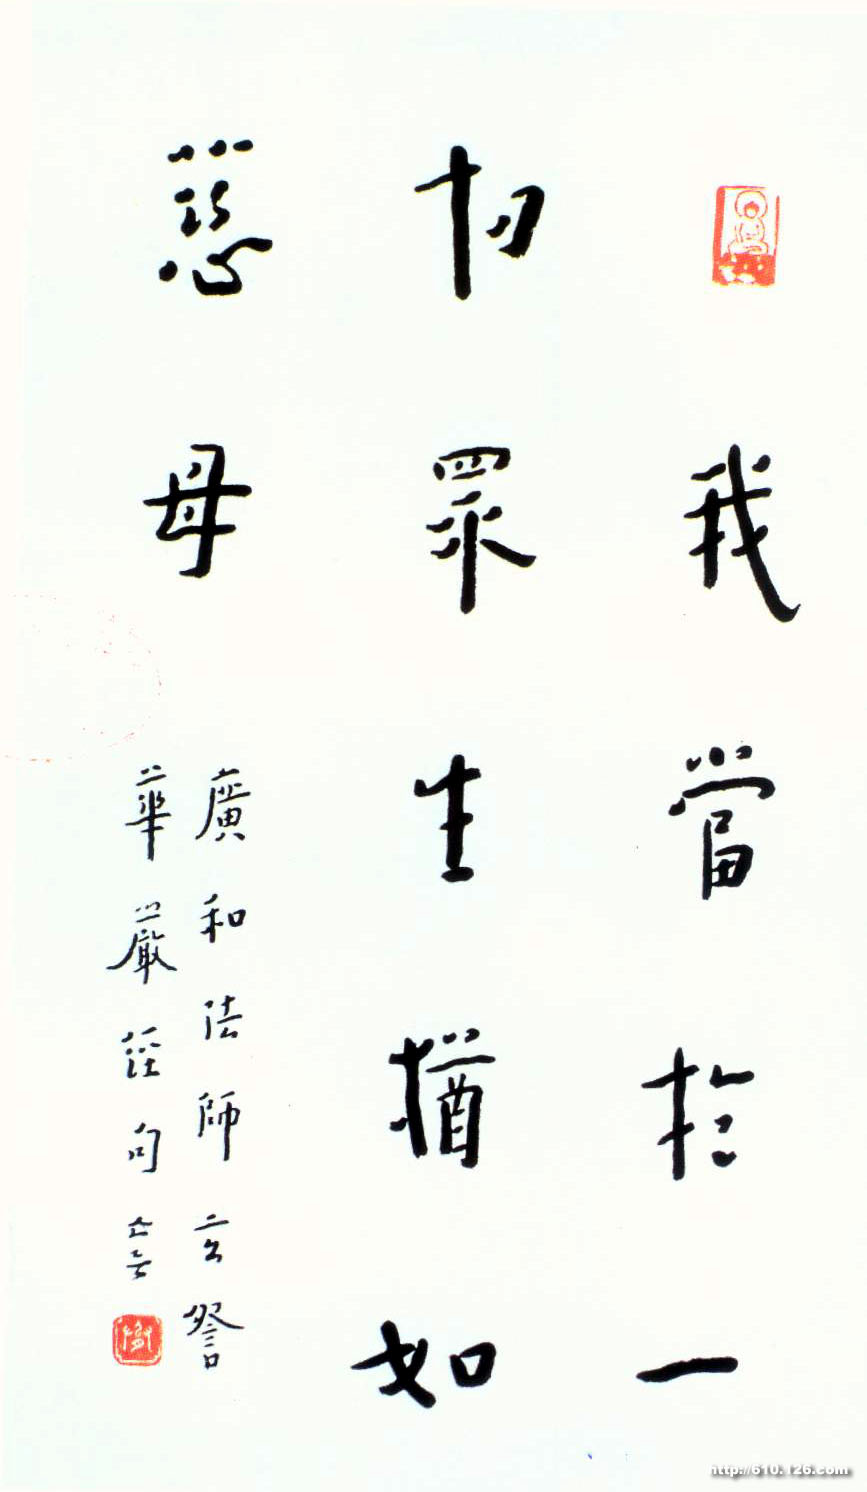 我當於一
切眾生猶如
慈母
廣和法師玄詧
華嚴經句
http://610.126.com